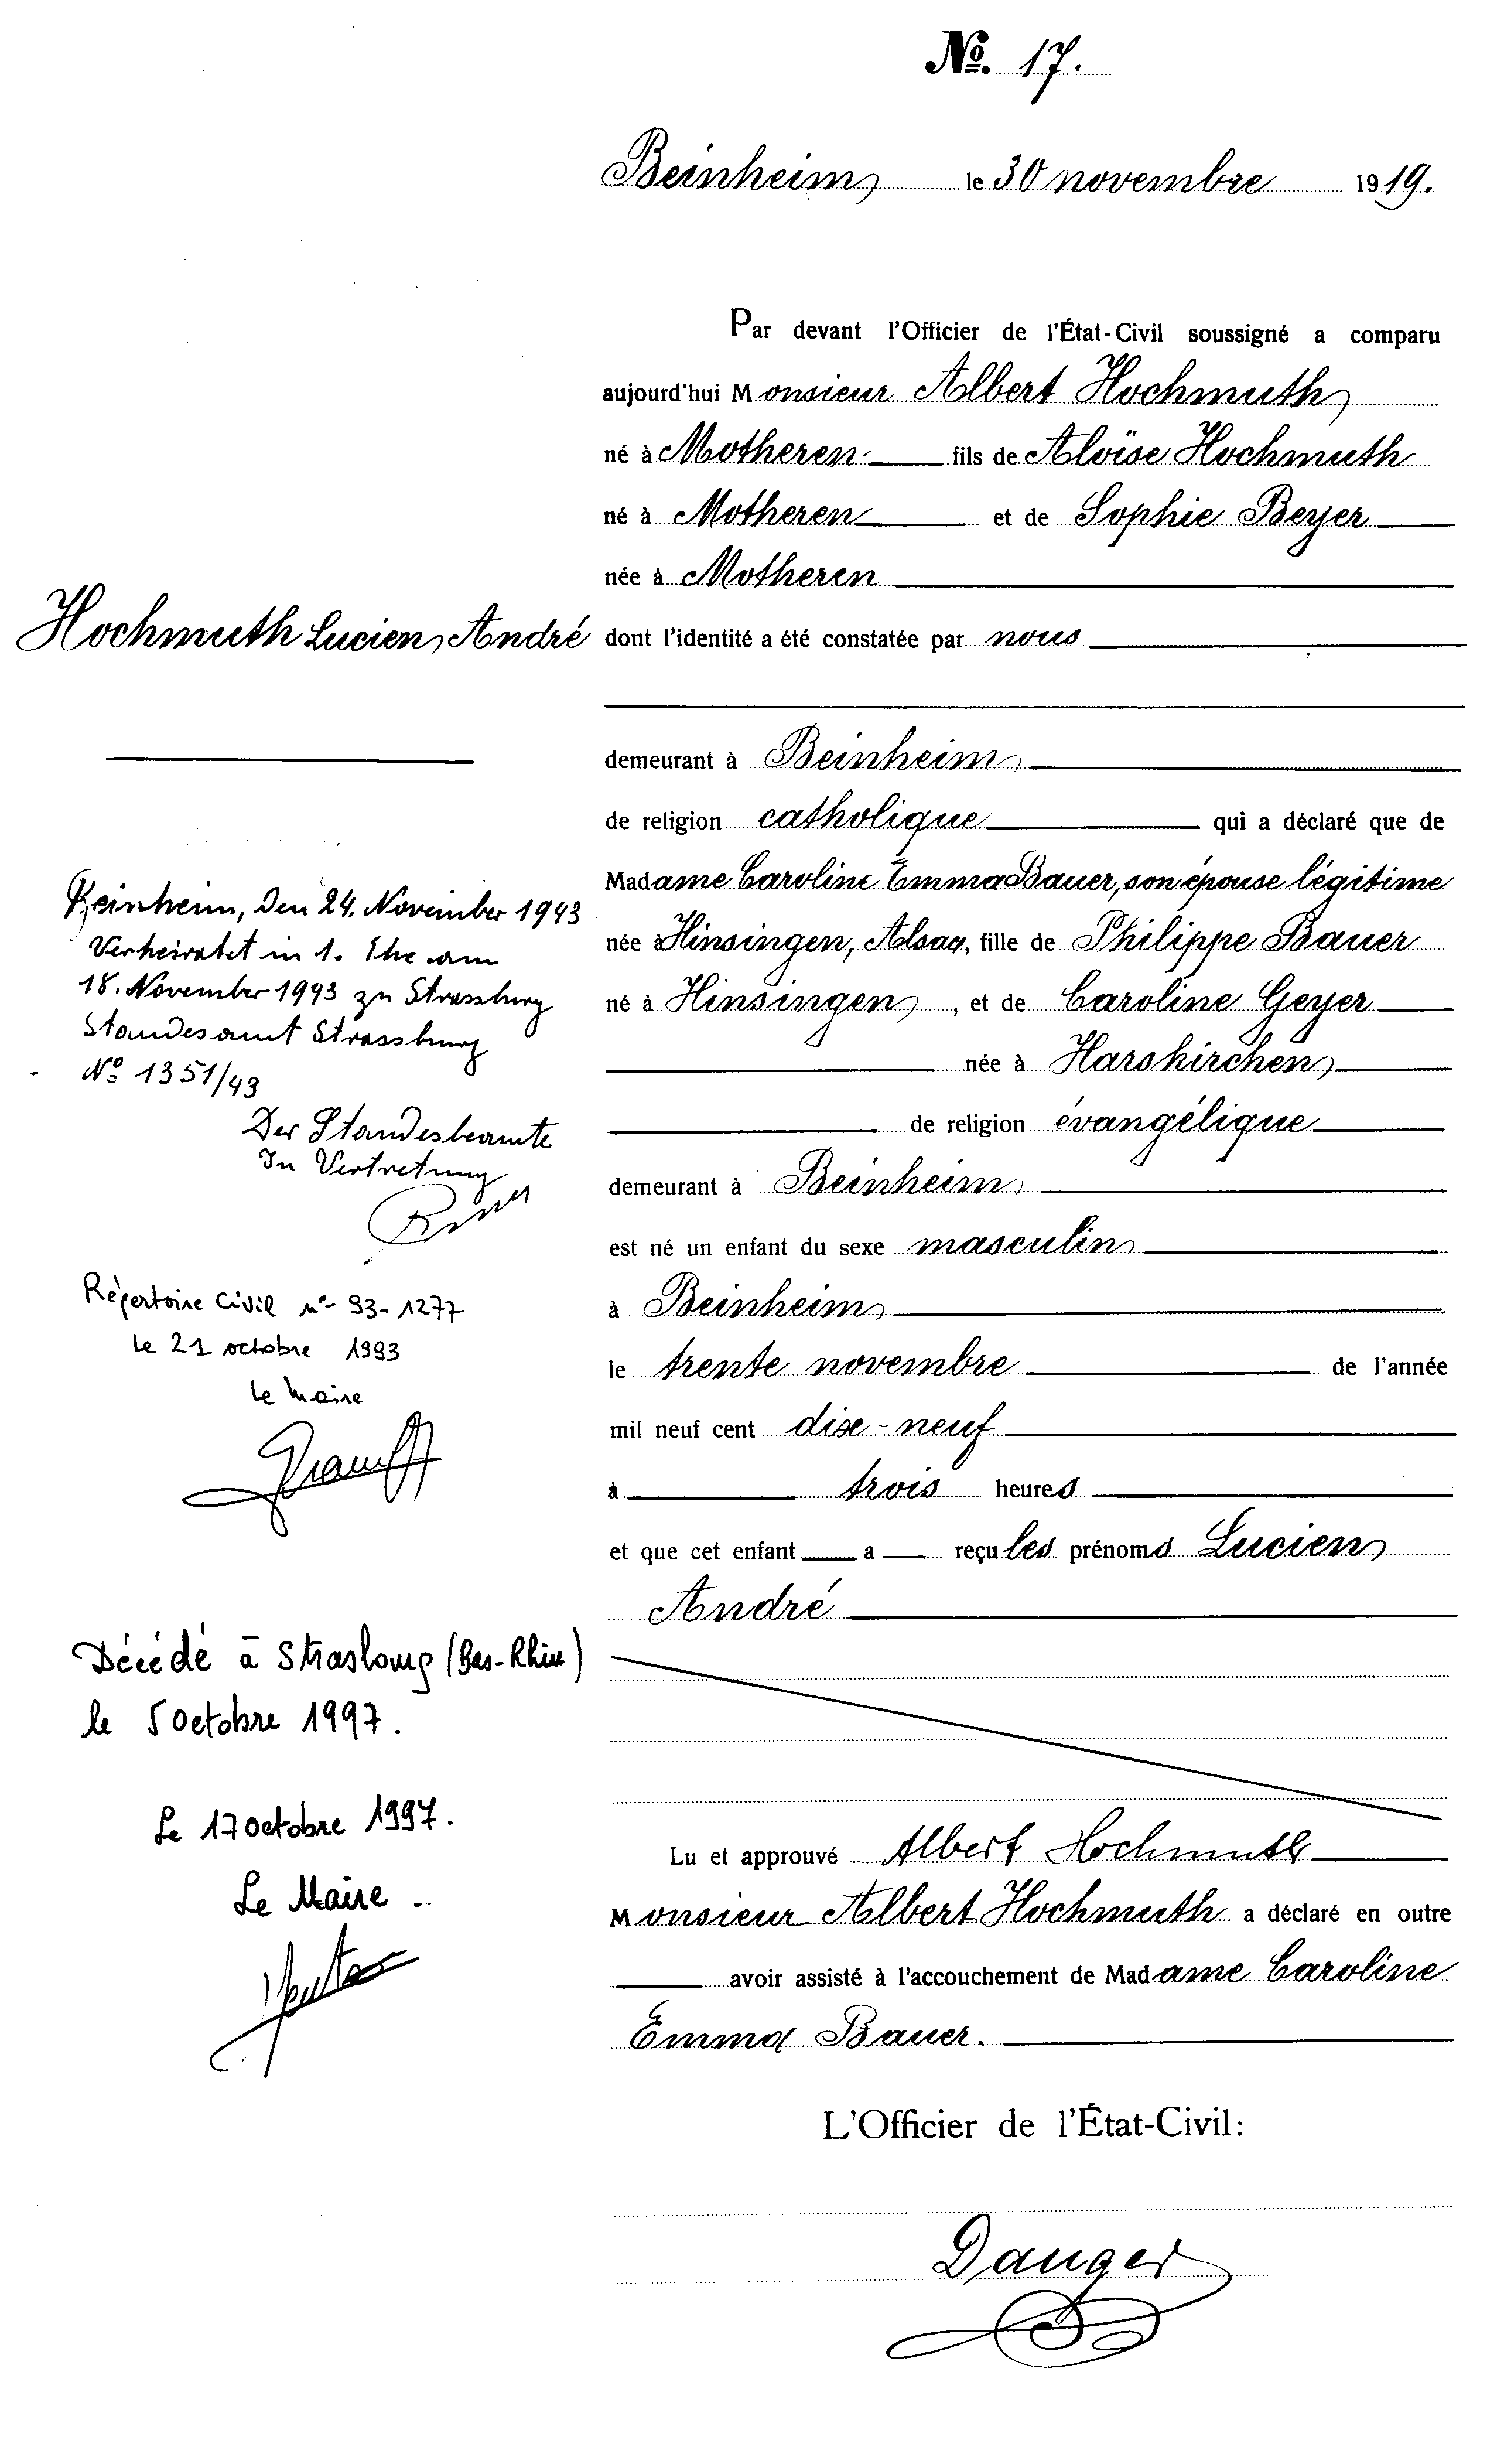 No. 17.
Beinheim, le 30 novembre 1919.
Par devant l'Officier de l'État-Civil soussigné a comparu
aujourd'hui Monsieur Albert Hochmuth,
né à Motheren fils de Aloïse Hochmuth
né à Motheren et de Sophie Beyer
née à Motheren
dont l'identité a été constatée par nous
demeurant à Beinheim,
de religion catholique qui a déclaré que de
Madame Caroline Emma Bauer, son épouse légitime
née à Hinsingen, Alsac, fille de Philippe Bauer
né à Hinsingen, et de Caroline Geyer
née à Harskirchen,
de religion évangélique
demeurant à Beinheim,
est né un enfant du sexe masculin
à Beinheim,
le trente novembre de l'année
mil neuf cent dix-neuf
à trois heures
et que cet enfant a reçu les prénoms Lucien,
André
Lu et approuvé Albert Hochmuth
Monsieur Albert Hochmuth a déclaré en outre
avoir assisté à l'accouchement de Madame Caroline
Emma Bauer.
L'Officier de l'État-Civil:
Danger
Hochmuth Lucien, André
Beinheim, den 24. November 1943
Verheiratet in 1. Ehe am
18. November 1943 zu Strassburg
Standesamt Strassburg
No 1351/43
Der Standesbeamte
In Vertretung
Répertoire Civil n° 93-1277
Le 21 octobre 1993
Le Maire
Décédé à Strasbourg (Bas-Rhin)
le 5 Octobre 1997.
Le 17 octobre 1997.
Le Maire